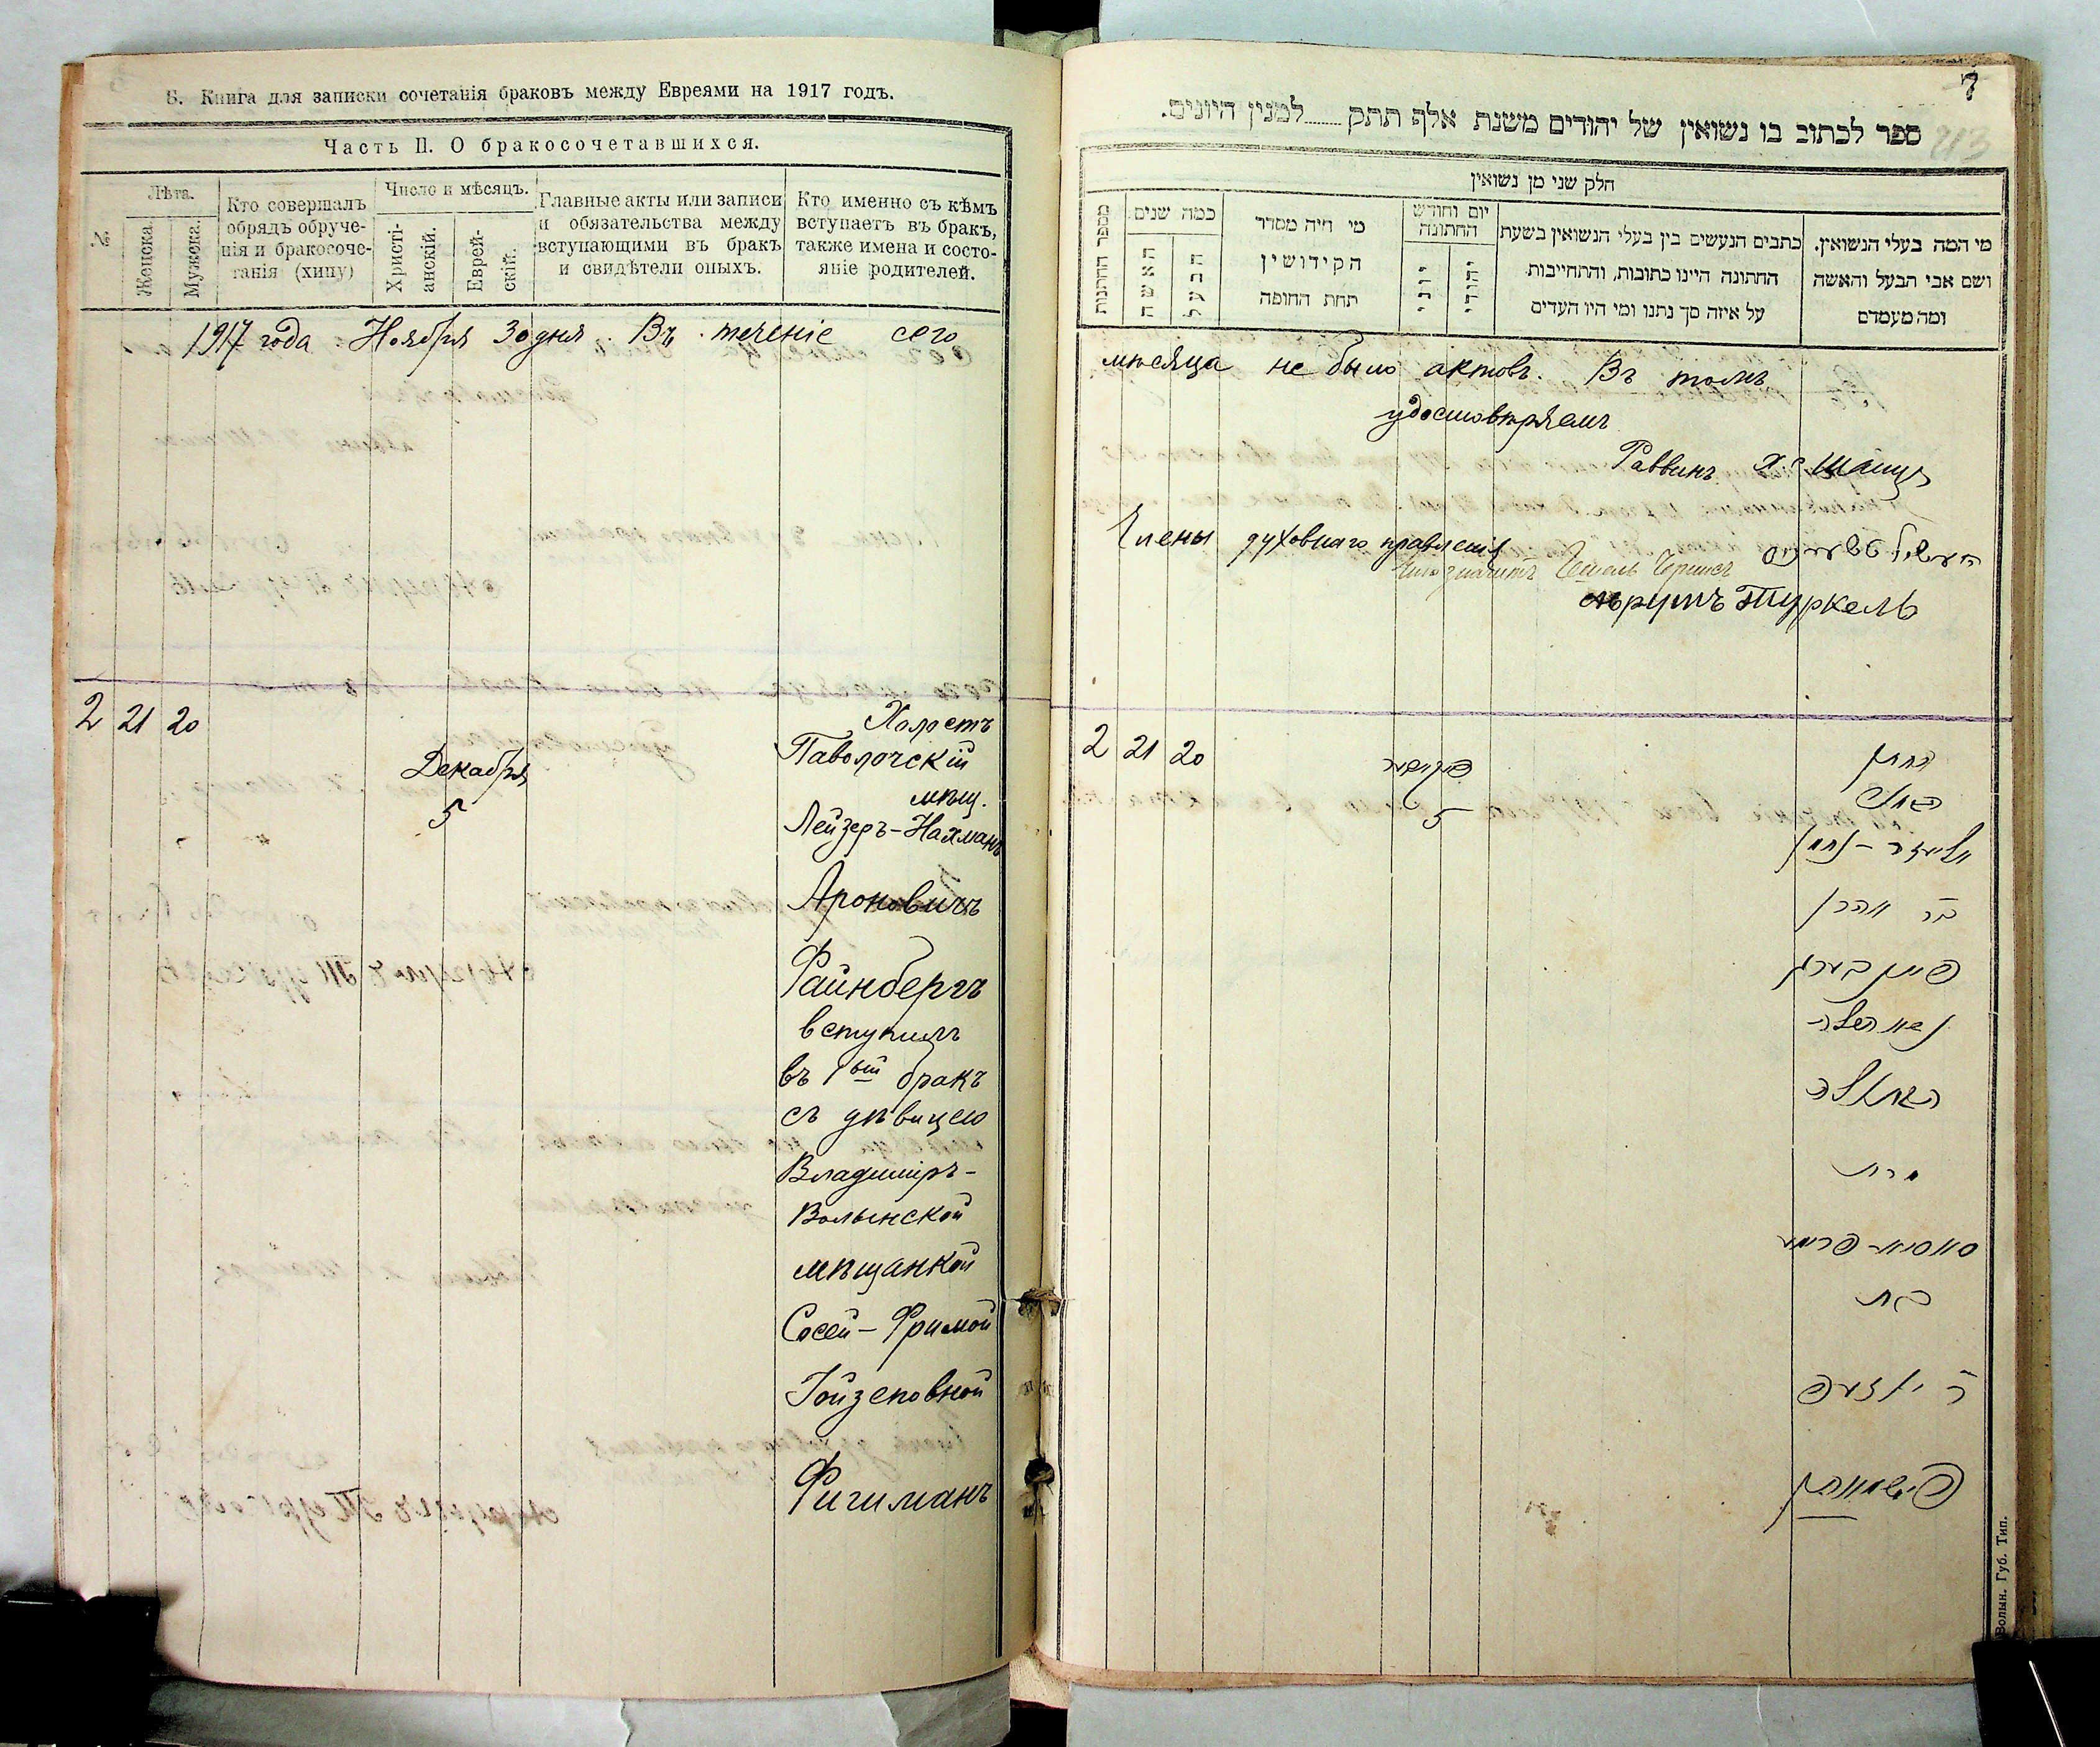 Б. Книга для записки сочетанія браковъ между Евреями на 1917 годъ.
Часть II. О бракосочетавшихся.
№.
Лѣта.
Женска.
Мужска.
Кто совершалъ
обрядъ обруче-
нія и бракосоче-
танія (хипу)
Число и мѣсяцъ.
Христі-
анскій.
Еврей-
скій.
Главные акты или записи
и обязательства между
вступающими въ бракъ
и свидѣтели оныхъ.
Кто именно съ кѣмъ
вступаетъ въ бракъ,
также имена и состо-
яніе родителей.
1917 года Ноября 30 дня. Въ теченіе сего
2 21 20
Декабря
5
Холостъ
Паволочскій
мѣщ.
Лейзеръ-Нахманъ
Ароновичъ
Файнбергъ
вступилъ
въ 1ый бракъ
съ дѣвицею
Владиміръ-
Волынской
мѣщанкой
Сосей-Фримой
Іойзеповной
Фишманъ
7
213
ספר לכתוב בו נשואין של יהודים משנת אלף תתק......למנין היונים.
חלק שני מן נשואין
מספר החתונות
כמה שנים
האשה
הבעל
מי היה מסדר
הקידושין
תחת החופה
יום וחודש
החתונה
יוני
יהודי
כתבים הנעשים בין בעלי הנשואין בשעת
החתונה היינו כתובות, והתחייבות
על איזה סך נתנו ומי היו העדים
מי המה בעלי הנשואין.
ושם אבי הבעל והאשה
ומה מעמדם
мѣсяца не было актовъ. Въ томъ
удостовѣряемъ
Раввинъ Х. С. Шапиро
Члены духовнаго правленія
Что значитъ Гешель Чернисъ
Аврумъ Туркель
2 21 20
דיקאבר
5
החתן
הבחור
אליעזר - נחמן
בר אהרן
פיינבערג
הבתולה
מרת
סאסיא-פרומע
בת
ר' יאזעפ
פישמאן
Волын. Губ. Тип.